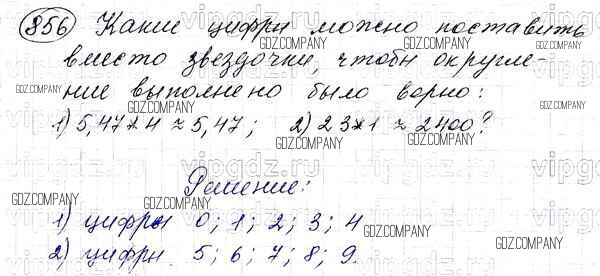 856 Какие цифры можно поставить
вместо звездочки, чтобы округле-
ние выполнено было верно:
1) 5,47*4 ≈ 5,47; 2) 23*1 ≈ 2400?
Решение:
1) цифры 0; 1; 2; 3; 4
2) цифры 5; 6; 7; 8; 9.